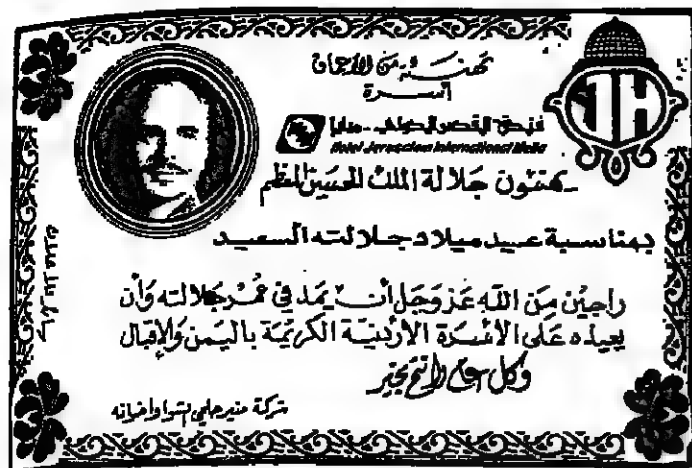 تهنئة من الأعماق
أسرة
JH
فندق القدس الدولي - ميليا
Hotel Jerusalem International Melia
يهنئون جلالة الملك الحسين المعظم
بمناسبة عيد ميلاد جلالته السعيد
راجين من الله عز وجل أن يمد في عمر جلالته وأن
يعيده على الأسرة الأردنية الكريمة باليمن والإقبال
وكل عام وأنتم بخير
شركة منير حلمي وإخوانه